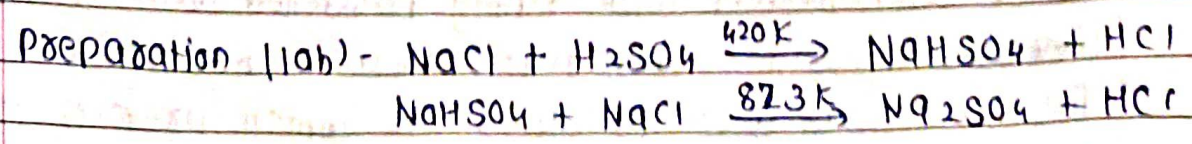 Preparation (lab) - NaCl + H2SO4 420K→ NaHSO4 + HCl
NaHSO4 + NaCl 823K→ Na2SO4 + HCl